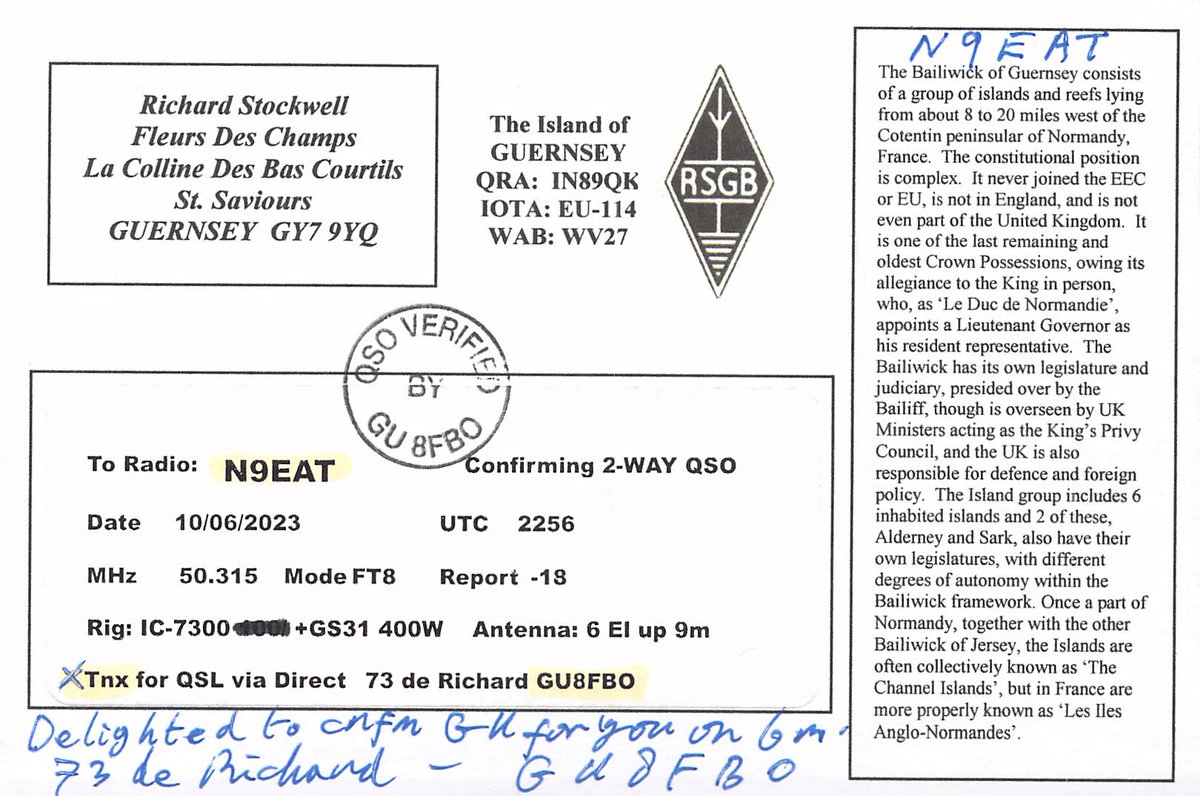 Richard Stockwell
Fleurs Des Champs
La Colline Des Bas Courtils
St. Saviours
GUERNSEY GY7 9YQ
The Island of
GUERNSEY
QRA: IN89QK
IOTA: EU-114
WAB: WV27
RSGB
QSO VERIFIED
BY
GU8FBO
To Radio: N9EAT Confirming 2-WAY QSO
Date 10/06/2023 UTC 2256
MHz 50.315 Mode FT8 Report -18
Rig: IC-7300 +GS31 400W Antenna: 6 El up 9m
Tnx for QSL via Direct 73 de Richard GU8FBO
Delighted to cnfm GU for you on 6m.
73 de Richard - GU8FBO
N9EAT
The Bailiwick of Guernsey consists
of a group of islands and reefs lying
from about 8 to 20 miles west of the
Cotentin peninsular of Normandy,
France. The constitutional position
is complex. It never joined the EEC
or EU, is not in England, and is not
even part of the United Kingdom. It
is one of the last remaining and
oldest Crown Possessions, owing its
allegiance to the King in person,
who, as ‘Le Duc de Normandie’,
appoints a Lieutenant Governor as
his resident representative. The
Bailiwick has its own legislature and
judiciary, presided over by the
Bailiff, though is overseen by UK
Ministers acting as the King’s Privy
Council, and the UK is also
responsible for defence and foreign
policy. The Island group includes 6
inhabited islands and 2 of these,
Alderney and Sark, also have their
own legislatures, with different
degrees of autonomy within the
Bailiwick framework. Once a part of
Normandy, together with the other
Bailiwick of Jersey, the Islands are
often collectively known as ‘The
Channel Islands’, but in France are
more properly known as ‘Les Iles
Anglo-Normandes’.